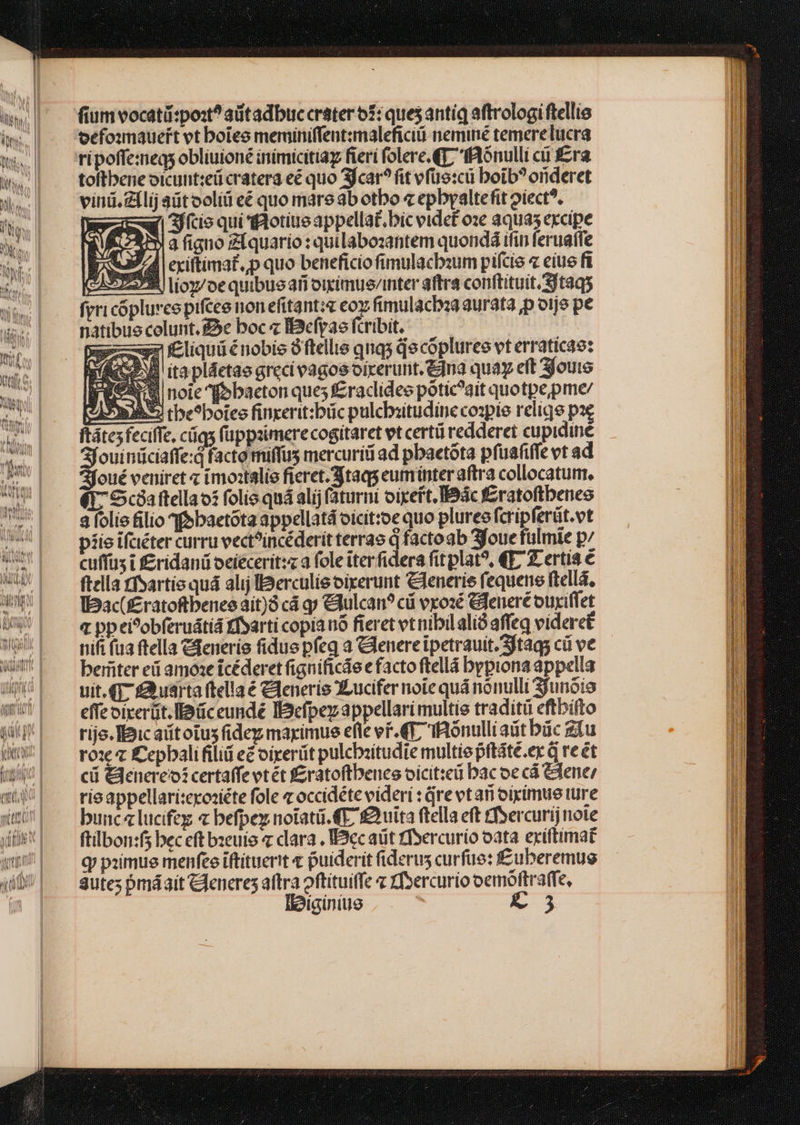 ſium vocatū:poſt⁹ aūt adhuc crater dr̄: queȝ antiq̄ aſtrologi ſtellis
deformauerūt vt hoīes meminiſſent:maleficiū neminē temere lucra
ri poſſe:neqȝ obliuionē inimicitiaꝝ fieri ſolere. ¶ Nōnulli cū Era
toſthene dicunt:eū cratera eē quo Icar⁹ ſit vſus:cū hoīb⁹ oñderet
vinū. Alij aūt doliū eē quo mars ab otho ⁊ ephyalte ſit ꝯiect⁹.
Piſcis qui Notius appellat̄. hic videt̄ ore aquas excipe
a ſigno Aquario : qui laborantem quondā iſin ſeruaſſe
exiſtimat̄. ꝓ quo beneficio ſimulachrum piſcis ⁊ eius fi
lioꝝ/ de quibus añ diximus/inter aſtra conſtituit. Itaqȝ
ſyri cōplures piſces non eſitant:⁊ eoꝝ ſimulachra aurata ꝓ dijs pe
natibus colunt. De hoc ⁊ Heſyas ſcribit.
Eliquū ē nobis d̓ ſtellis qnqȝ q̄s cōplures vt erraticas:
ita plāetas greci vagos dixerunt. Una quaꝝ eſt Iouis
noīe Phaeton queȝ Eraclides pōtic⁹ ait quo tpe ꝓme/
the⁹ hoīes finxerit:hūc pulchritudine corpis reliqs pre
ſtāteȝ feciſſe. cūqȝ ſupprimere cogitaret vt certū redderet cupidinē
Ioui nūciaſſe:q̄ facto miſſus mercuriū ad phaetōta ꝑſuaſiſſe vt ad
Ioué veniret ⁊ īmortalis fieret. Itaqȝ eum inter aſtra collocatum.
¶ Scd̓a ſtella dr̄ ſolis quā alij ſaturni dixeſt. Hāc Eratoſthenes
a ſolis filio Phaetōta appellatā dicit:de quo plures ſcripſerūt. vt
pr̄is iſciēter curru vect⁹ incēderit terras q̄ facto ab Ioue fulmīe p̄/
cuſſus ī Eridanū deiecerit:⁊ a ſole iter ſidera ſit plat⁹. ¶ Tertia ē
ſtella Martis quā alij Herculis dixerunt Ueneris ſequens ſtellā.
Hac(Eratoſthenes ait)d̓ cā ꝙ Uulcan⁹ cū vxorē Uenerē duxiſſet
⁊ ꝓp ei⁹ obſeruātiā Marti copia nō fieret vt nihil aliđ aſſeq videret̄
niſi ſua ſtella Ueneris ſidus ꝑſeq a Uenere īpetrauit. Itaqȝ cū ve
hemīter eū amore īcēderet ſignificās e facto ſtellā hypiona appella
uit. ¶ Quarta ſtella ē Ueneris Lucifer noīe quā nōnulli Iunōis
eſſe dixerūt. Hūc eundē Heſpeꝝ appellari multis traditū eſt hiſto
rijs. Hic aūt oīuȝ ſideꝝ maximus eſſe vr̄. ¶ Nōnulli aūt hūc Au
rore ⁊ Cephali filiū eē dixerūt pulchritudīe multis p̄ſtātē. ex q̄ re ēt
cū Uenere dr̄ certaſſe vt ēt Eratoſthenes dicit:eū hac de cā Uene/
ris appellari:exoriēte ſole ⁊ occidēte videri : q̄re vt añ diximus iure
hunc ⁊ lucifeꝝ ⁊ heſpeꝝ noīatū. ¶ Quīta ſtella eſt Mercurij noīe
ſtilbon:ſȝ hec eſt breuis ⁊ clara . Hec aūt Mercurio data exiſtimat̄
ꝙ primus menſes īſtituerit ⁊ p̄uiderit ſiderus curſus: Euhemerus
auteȝ p̄mā ait Ueneres aſtra ꝯſtituiſſe ⁊ Mercurio demōſtraſſe.
Higinius E 3